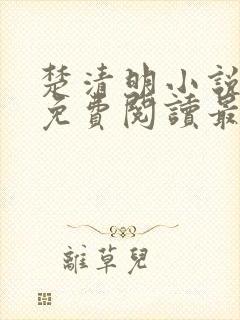 楚清明小說
免費閱讀最
離草兒